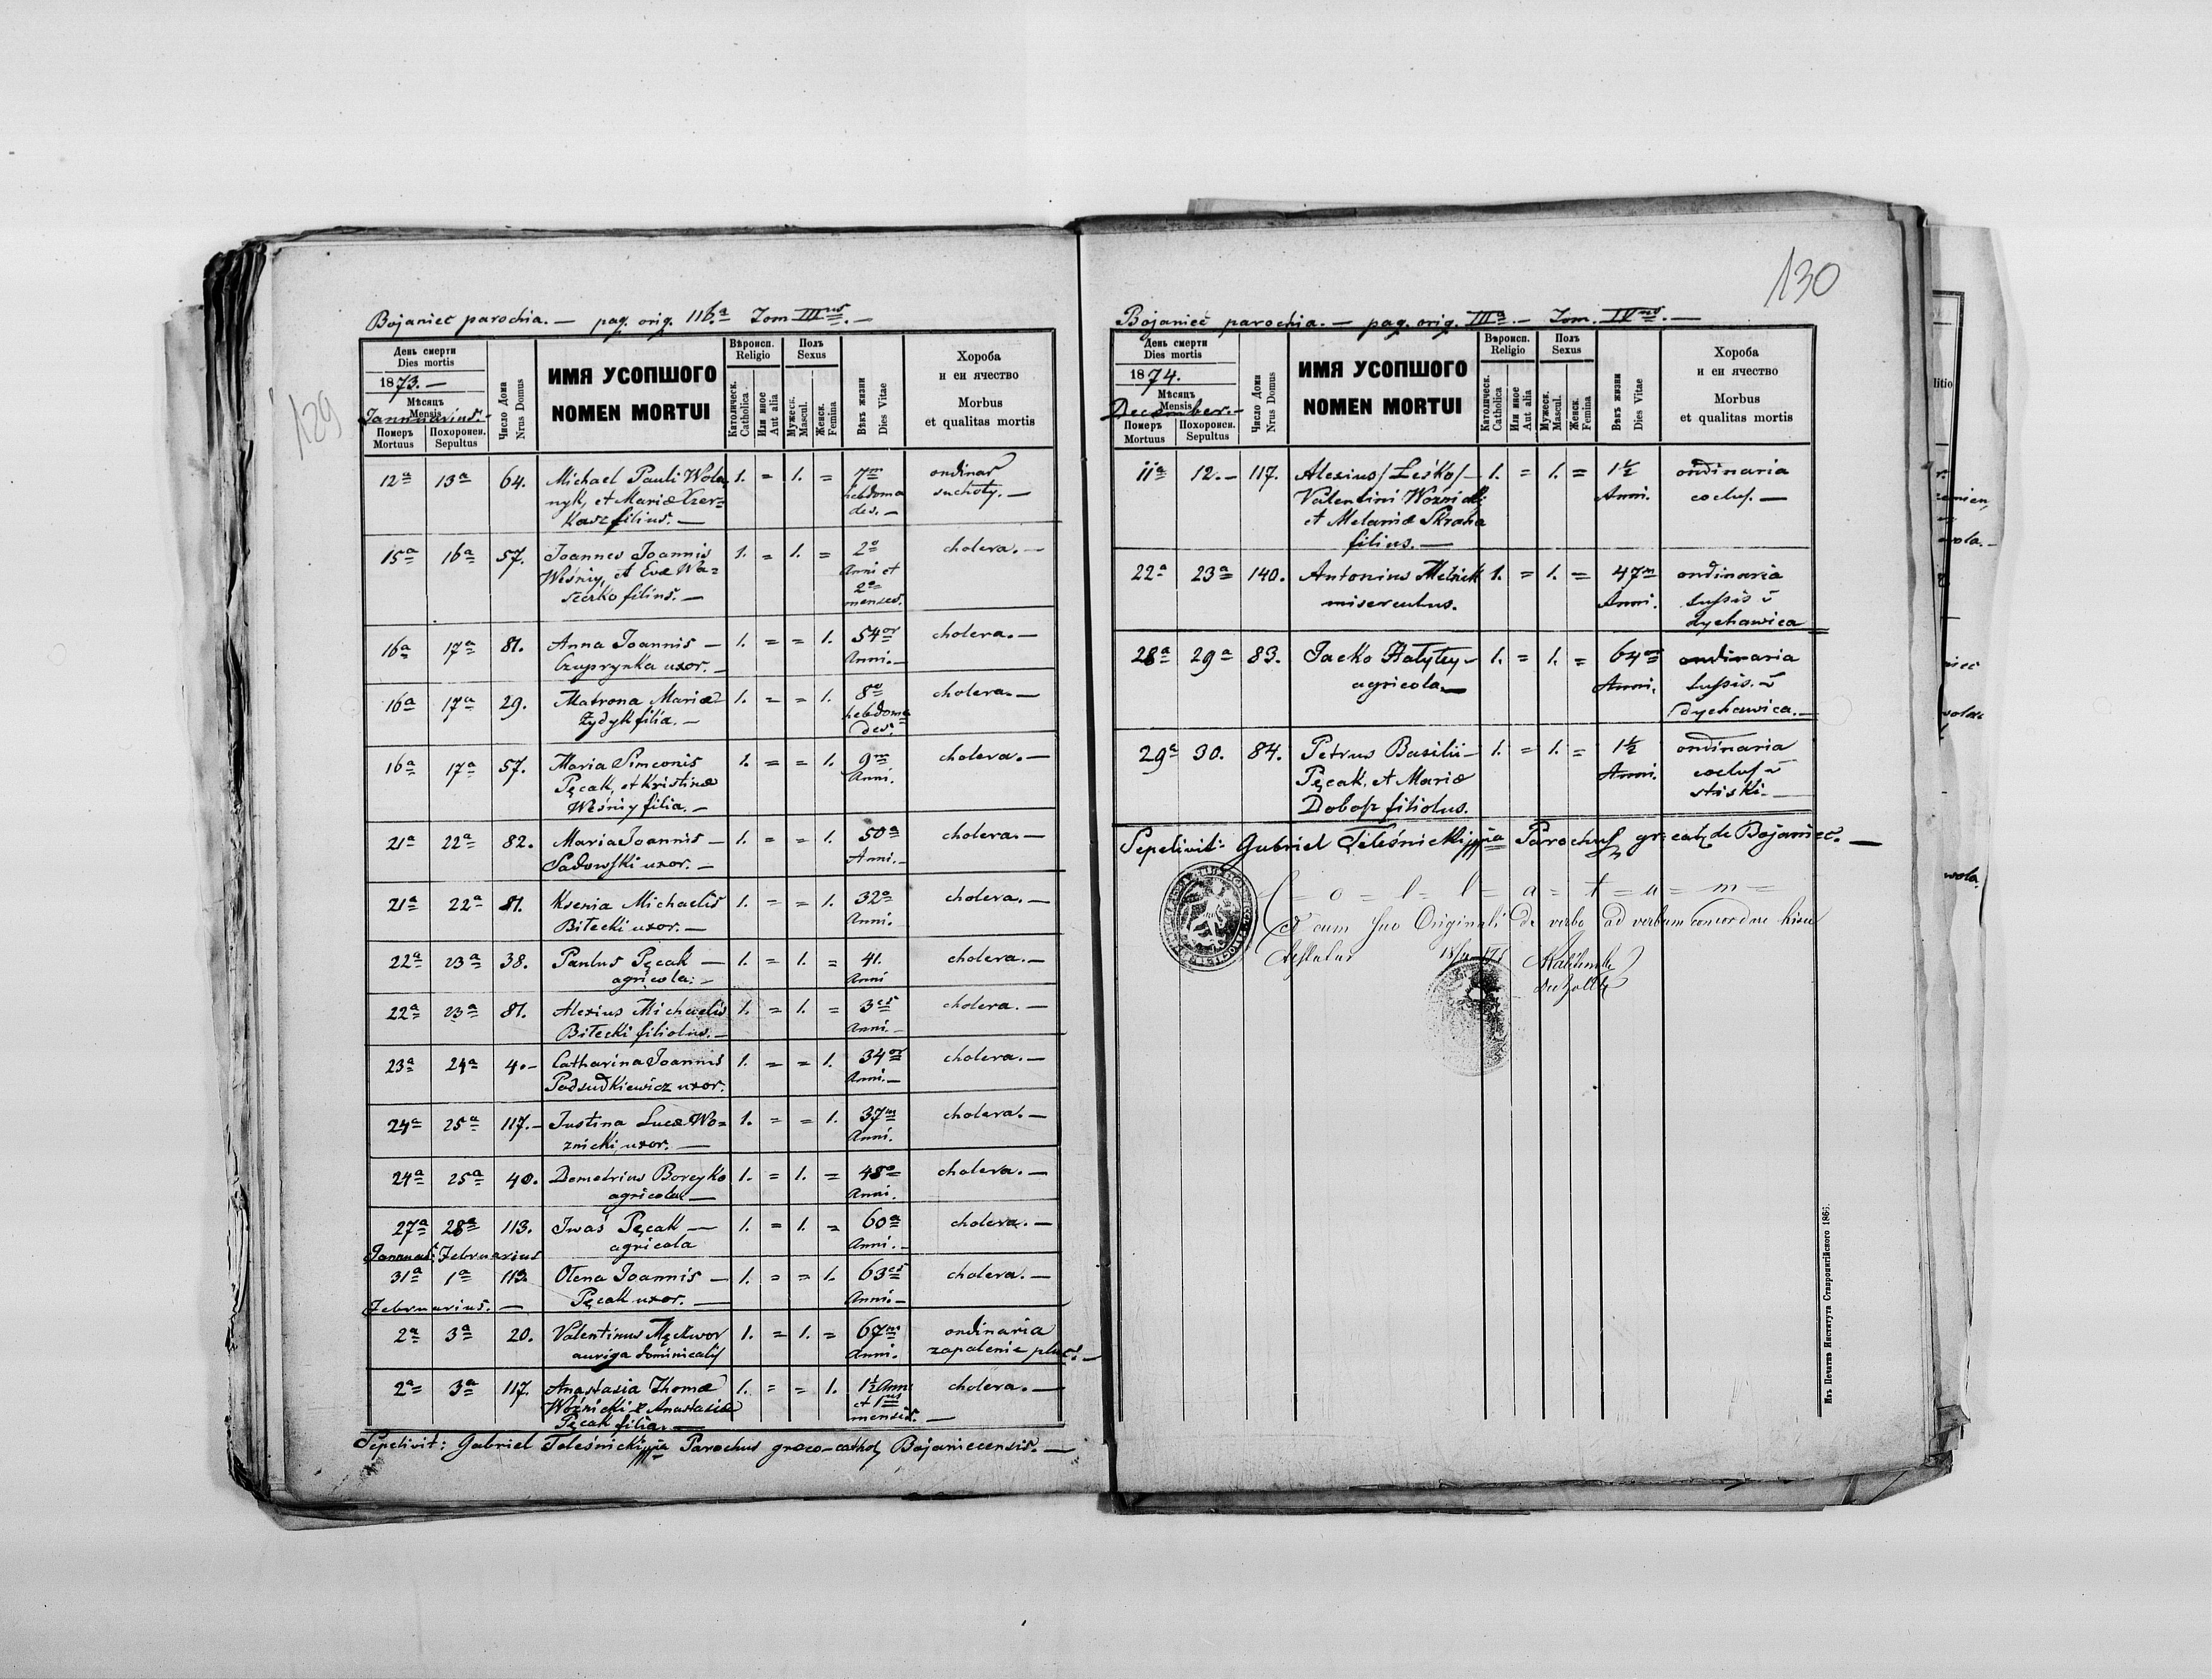 129
Bojaniec parochia. — pag. orig. 116.ª Tom IIIus. —
День смерти
Dies mortis
1873. —
Мѣсяць
Mensis
Jannuarius. -
Померъ
Mortuus
Похоронен.
Sepultus
Число Дома
Nrus Domus
ИМЯ УСОПШОГО
NOMEN MORTUI
Вѣроисп.
Religio
Католическ.
Catholica
Или иное
Aut alia
Полъ
Sexus
Мужеск.
Mascul.
Женск.
Femina
Вѣкъ жизни
Dies Vitae
Хороба
и еи ячество
Morbus
et qualitas mortis
12ª 13ª 64. Michael Pauli Wola- 1. = 1. = 7m ordinar
nyk, et Mariæ Czer= hebdoma suchoty. —
kasz filius. — des. —
15ª 16ª 57. Joannes Joannis 1. = 1. = 2o cholera. —
Weśniy, et Evæ Wa= Anni et
szczko filius. — 2o
menses.
16ª 17ª 81. Anna Joannis — 1. = = 1. 54or cholera. —
Czuprynka uxor. — Anni. —
16ª 17ª 29. Matrona Mariæ 1. = = 1. 8o cholera. —
Żydyk filia. — hebdoma
des.
16ª 17ª 57. Maria Simeonis 1. = = 1. 9m cholera. —
Pęcak, et Kristinæ Anni.
Weśniy filia. —
21ª 22ª 82. Maria Joannis — 1. = = 1. 50ª cholera. —
Sadowski uxor. — Anni. —
21ª 22ª 81. Ksenia Michaelis 1. = = 1. 32ª cholera. —
Biłecki uxor. — Anni.
22ª 23ª 38. Paulus Pęcak — 1. = 1. = 41. cholera. —
agricola. — Anni
22ª 23ª 81. Alexius Michaelis 1. = 1. = 3es cholera. —
Biłecki filiolus. — Anni. —
23ª 24ª 40— Catharina Joannis 1. = = 1. 34or cholera. —
Podsudkiewicz uxor. Anni. —
24ª 25ª 117. — Justina Lucæ Wo= 1. = = 1. 37m cholera. —
znicki uxor. — Anni.
24ª 25ª 40. Demetrius Boreyko 1. = 1. = 48o cholera. —
agricola — Anni.
27ª 28ª 113. Iwaś Pęcak — 1. = 1. = 60ª cholera. —
agricola Anni. —
Januar. Februarius
31ª 1ª 113. Olena Joannis — 1. = = 1. 63es cholera. —
Pęcak uxor. — Anni. —
Februarius. —
2ª 3ª 20. Valentinus 1. = 1. = 67m ordinaria
auriga dominicalis Anni. zapalenie płuc. —
2ª 3ª 117. Anastasia Thomæ 1. = = 1. 1½ Anni cholera. —
Woźnicki & Anastasiæ et 1us
Pęcak filia. — mensis. —
Sepelivit: Gabriel Teleśnicki mpia Parochus græco-cathol Bojaniecensis. —
130
Bojaniec parochia. — pag. orig. IIIª. — Tom. IVus. —
День смерти
Dies mortis
1874.
Мѣсяць
Mensis
December. —
Померъ
Mortuus
Похоронен.
Sepultus
Число Дома
Nrus Domus
ИМЯ УСОПШОГО
NOMEN MORTUI
Вѣроисп.
Religio
Католическ.
Catholica
Или иное
Aut alia
Полъ
Sexus
Мужеск.
Mascul.
Женск.
Femina
Вѣкъ жизни
Dies Vitae
Хороба
и еи ячество
Morbus
et qualitas mortis
11ª 12. — 117. Alexius /Leśko/ — 1. = 1. = 1½ ordinaria
Valentini Woźnicki Anni. coclus. —
et Melaniæ Skraba
filius. —
22ª 23ª 140. Antonius Melnik 1. = 1. = 47m ordinaria
miserculus. Anni. tussis
dychawica
28ª 29ª 83. Jacko Hałytey — 1. = 1. = 64or ordinaria
agricola — Anni. tussis.
dychawica. —
29ª 30. 84. Petrus Basilii — 1. = 1. = 1½ ordinaria
Pęcak, et Mariæ Anni. coclus
Dobosz filiolus. stiski. —
Sepelivit: Gabriel Teleśnicki mpia Parochus gr. cath de Bojaniec. —
C = o = l = l = a = t = u = m =
et cum suo Originali de verbo ad verbum concordare hisce
Изъ Печатнѣ Института Ставропигійского 1866.